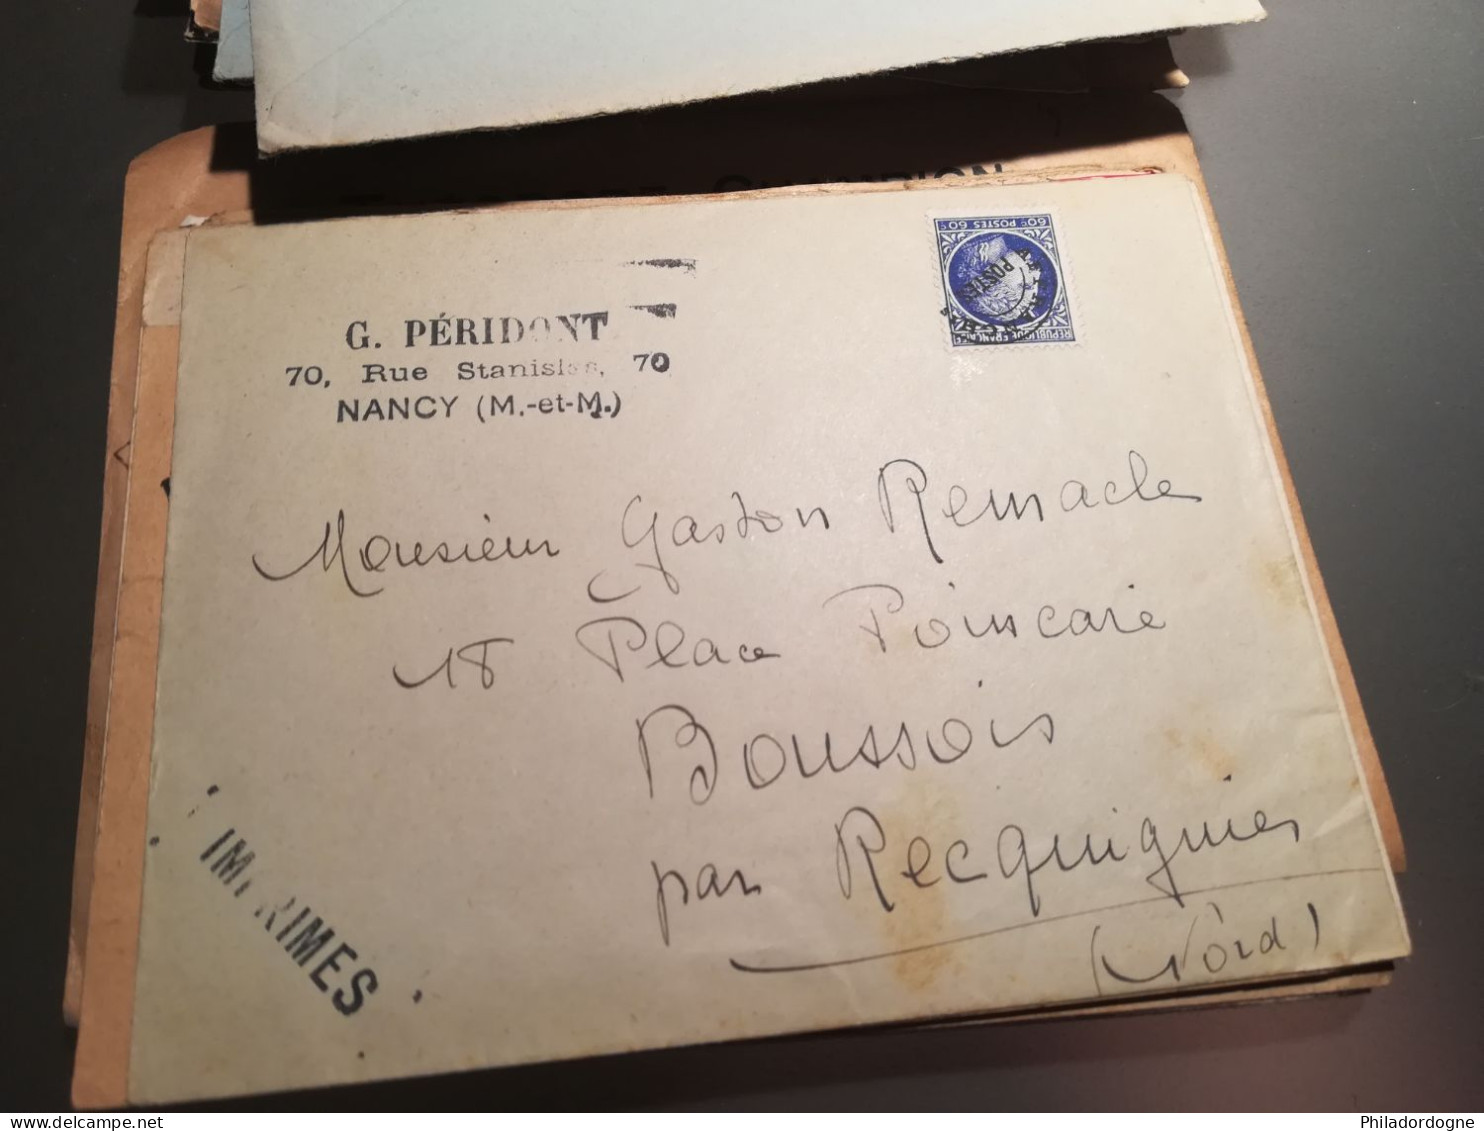 CHAMPION
60c POSTES 60c
RÉPUBLIQUE FRANÇAISE
AFFRANCHts
POSTES
G. PÉRIDONT
70, Rue Stanislas, 70
NANCY (M.-et-M.)
Monsieur Gaston Remacle
18 Place Poincaré
Boussois
par Recquignies
(Nord)
IMPRIMES
Philadordogne